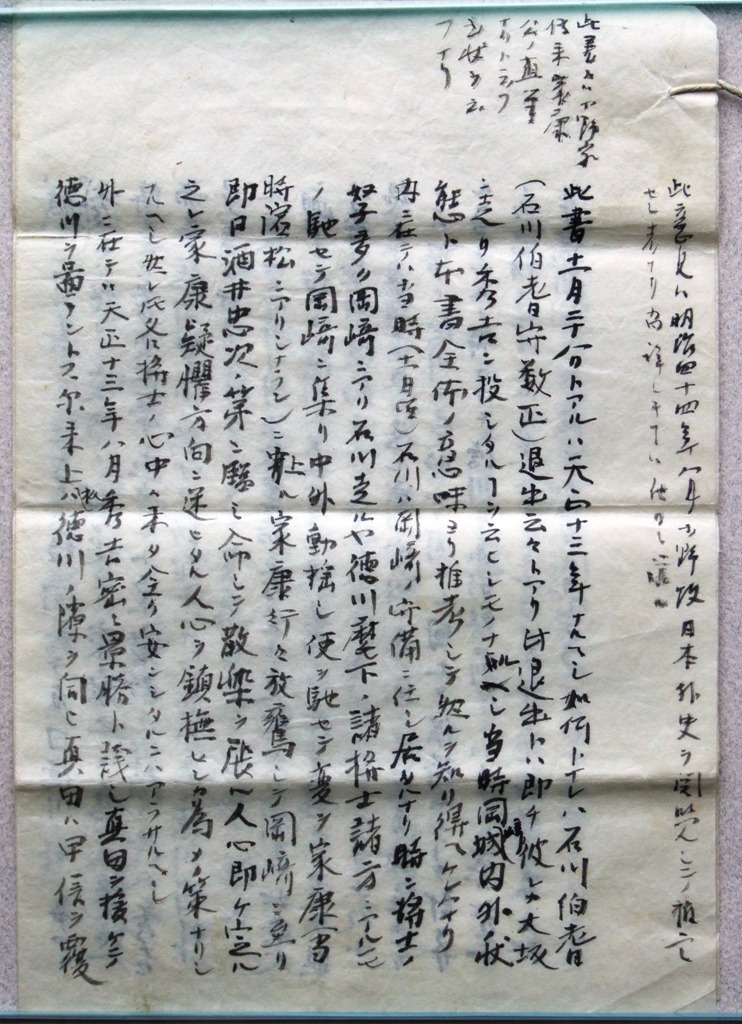 此意見ハ明治四十四年八月小野政日本外史ヲ閲覧シテ推定
セシ者ナリ尚詳シキハ他日ニ譲ル
此書ハ小野家
伝来家康
公ノ直筆
ナリト云フ
此書十一月二十八日トアルハ天正十三年ナルヘシ如何トナレハ石川伯耆
(石川伯耆守数正)退出云々トアリ此退出トハ即チ彼レカ大坂
ニ走リ秀吉ニ投シタルヿヲ云ヒシモノナルヘシ当時岡崎城内外ノ状
態ト本書全体ノ意味ヨリ推考シテ然ルヲ知リ得ヘケレハナリ
内ニ在テハ当時(十一月頃)石川ハ岡崎ノ守備ニ任シ居タルナリ時ニ将士ノ
孥多ク岡崎ニアリ石川走ルヤ徳川麾下ノ諸将士諸方ニアルモ
ノ馳セテ岡崎ニ集リ中外動揺シ使ヲ馳セテ変ヲ家康(当
時濱松ニアリシナラン)ニ上ル家康行々放鷹シテ岡崎ニ至リ
即日酒井忠次ノ第ニ臨ミ命シテ散楽ヲ張ル人心即ケ安シ
之レ家康疑懼方向ニ迷ヒタル人心ヲ鎮撫セシ為メノ策ナリシ
ナルヘシ然レ氏各将士ノ心中ハ未タ全ク安ンシタルニハアラサルヘシ
外ニ在テハ天正十三年八月秀吉密ニ景勝ト議シ真田ヲ援ケテ
徳川ヲ図ラントス爾来上杉ハ徳川ノ隙ヲ伺ヒ真田ハ甲信ヲ覆